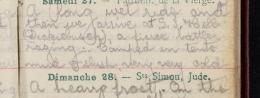 Samedi 27. — de la Vierge.
A long wet ride and
then we (arrive at S.
a fierce battle
raging. Camped in tents
mid slush, very very cold
Dimanche 28. — Sts Simon, Jude.
A heavy frost. On the